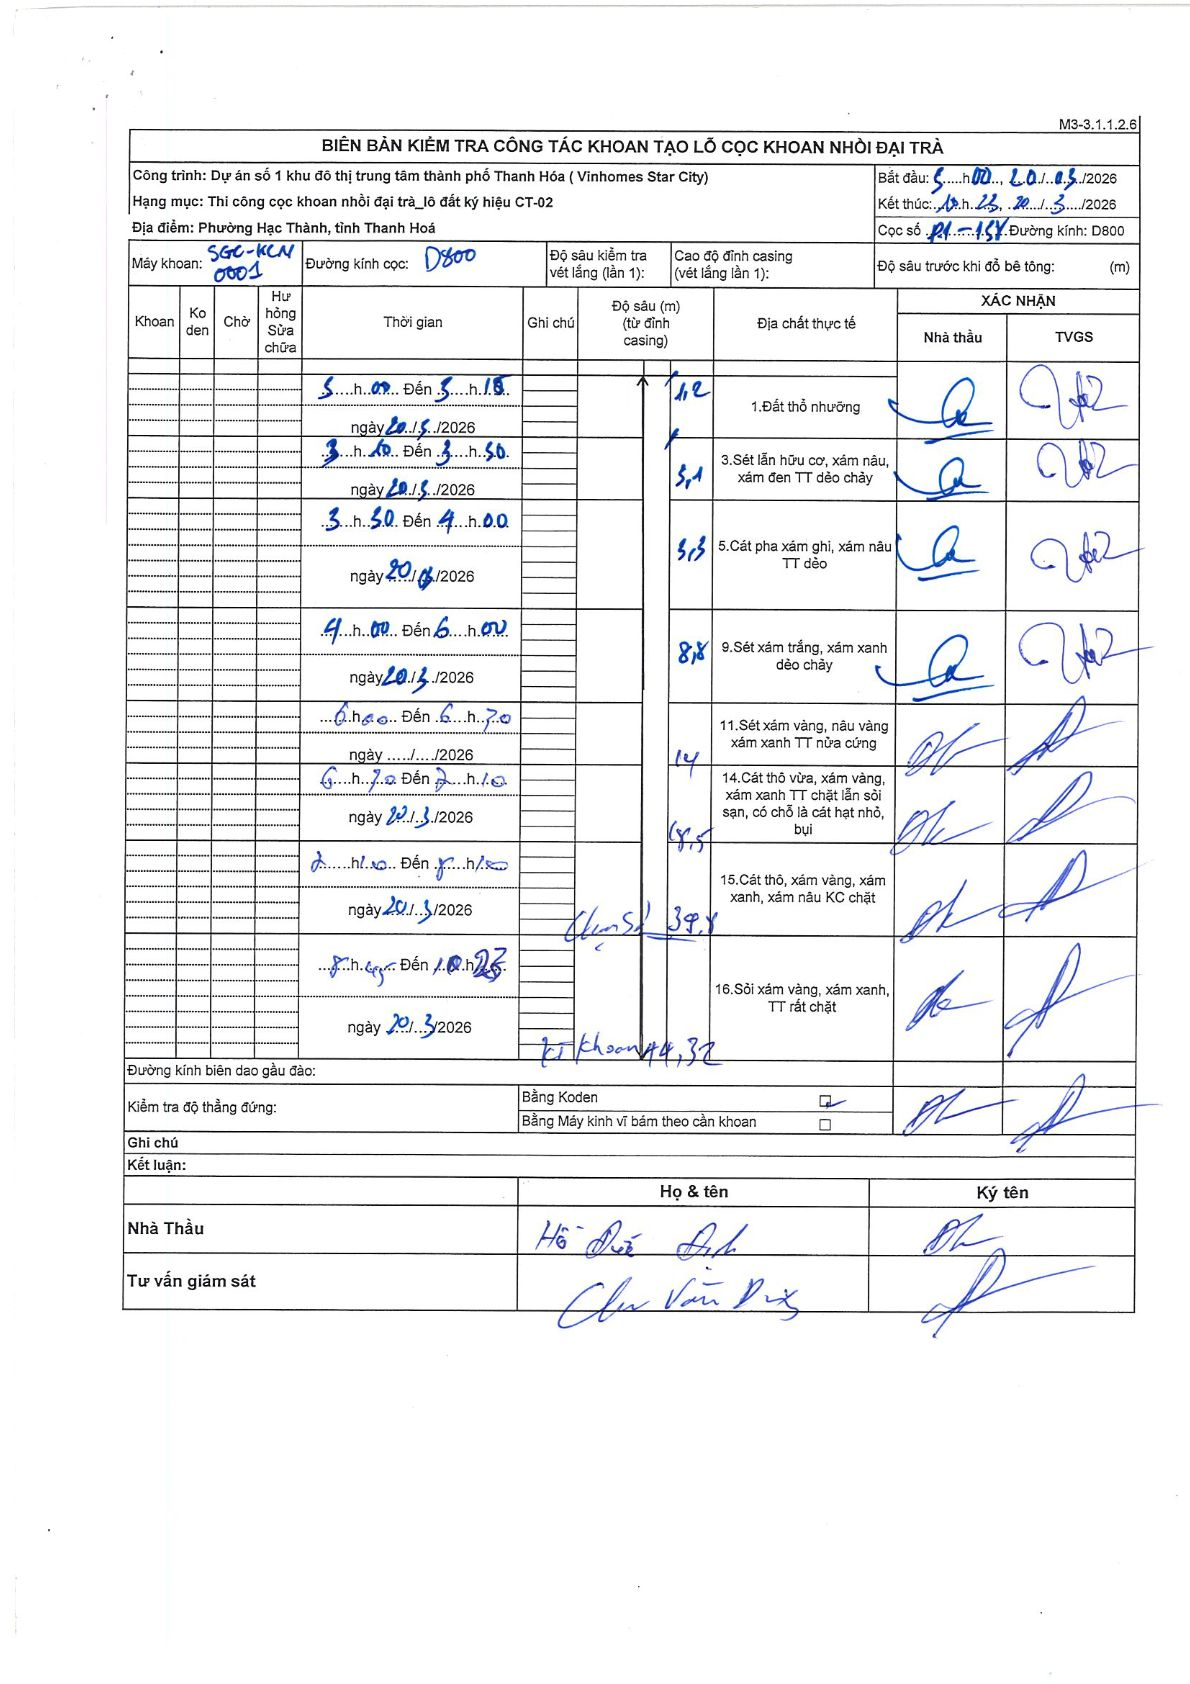 M3-3.1.1.2.6
BIÊN BẢN KIỂM TRA CÔNG TÁC KHOAN TẠO LỖ CỌC KHOAN NHỒI ĐẠI TRÀ
Công trình: Dự án số 1 khu đô thị trung tâm thành phố Thanh Hóa ( Vinhomes Star City)
Hạng mục: Thi công cọc khoan nhồi đại trà_lô đất ký hiệu CT-02
Địa điểm: Phường Hạc Thành, tỉnh Thanh Hoá
Bắt đầu: 3 h 00, 20/03/2026
Kết thúc: 10 h 23, 20/3/2026
Cọc số Đường kính: D800
Máy khoan: SGC-KCN 0001
Đường kính cọc: D800
Độ sâu kiểm tra vét lắng (lần 1):
Cao độ đỉnh casing (vét lắng lần 1):
Độ sâu trước khi đổ bê tông: (m)
Khoan
Ko den
Chờ
Hư hỏng Sửa chữa
Thời gian
Ghi chú
Độ sâu (m) (từ đỉnh casing)
Địa chất thực tế
XÁC NHẬN
Nhà thầu
TVGS
3 h 00 Đến 3 h
ngày 20/3/2026
1,2
1.Đất thổ nhưỡng
3 h 10 Đến 3 h 30
ngày 20/3/2026
3,1
3.Sét lẫn hữu cơ, xám nâu, xám đen TT dẻo chảy
3 h 30 Đến 4 h 00
ngày 20/03/2026
3,3
5.Cát pha xám ghi, xám nâu TT dẻo
4 h 00 Đến 6 h 00
ngày 20/3/2026
8,8
9.Sét xám trắng, xám xanh dẻo chảy
6 h 00 Đến 6 h 30
ngày ...../..../2026
14
11.Sét xám vàng, nâu vàng xám xanh TT nửa cứng
6 h 30 Đến 7 h 10
ngày 20/3/2026
18,5
14.Cát thô vừa, xám vàng, xám xanh TT chặt lẫn sỏi sạn, có chỗ là cát hạt nhỏ, bụi
7 h 10 Đến 8 h
ngày 20/3/2026
Chạm Sỏi 39,8
15.Cát thô, xám vàng, xám xanh, xám nâu KC chặt
8 h 45 Đến 10 h 23
ngày 20/3/2026
KT khoan 44,32
16.Sỏi xám vàng, xám xanh, TT rất chặt
Đường kính biên dao gầu đào:
Kiểm tra độ thẳng đứng:
Bằng Koden
Bằng Máy kinh vĩ bám theo cần khoan
Ghi chú
Kết luận:
Họ & tên
Ký tên
Nhà Thầu
Hồ Đức Định
Tư vấn giám sát
Chu Văn